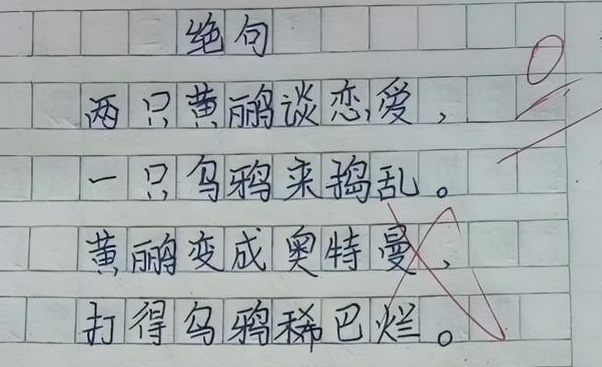 绝句
两只黄鹂谈恋爱，
一只乌鸦来捣乱。
黄鹂变成奥特曼，
打得乌鸦稀巴烂。
0